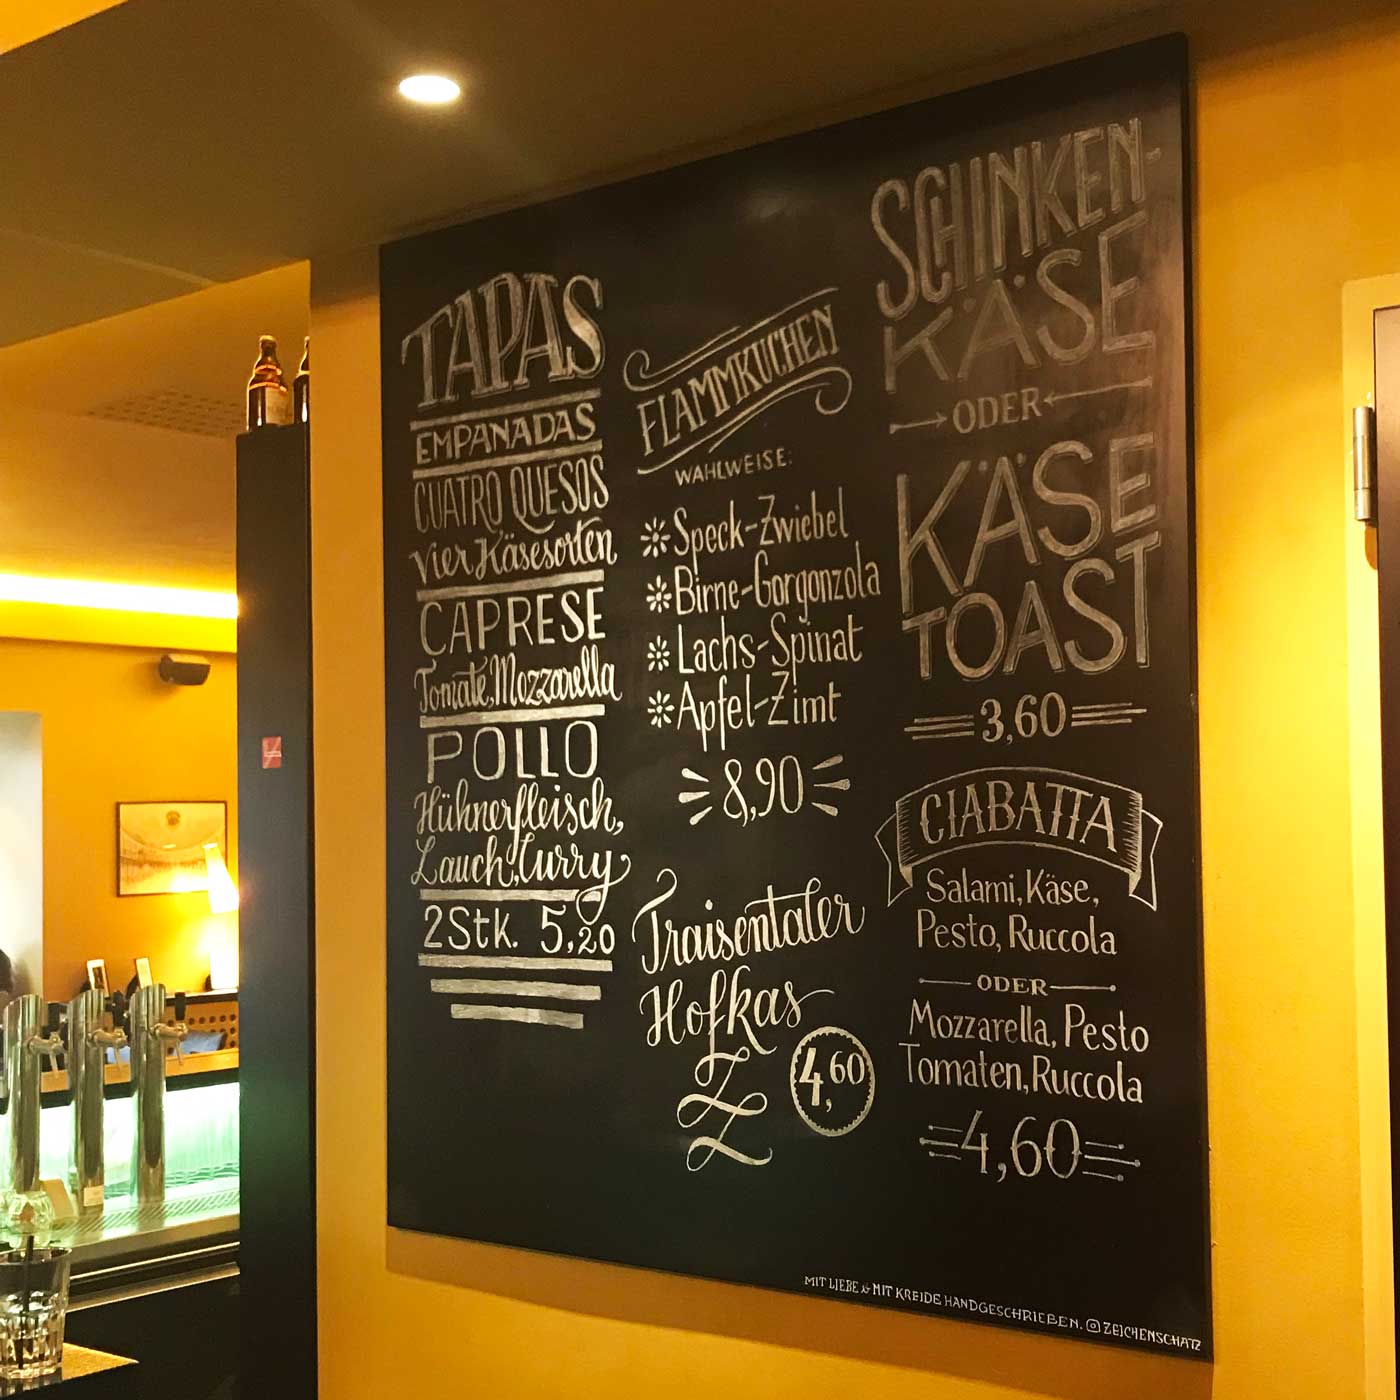 TAPAS
EMPANADAS
CUATRO QUESOS
vier Käsesorten
CAPRESE
Tomate, Mozzarella
POLLO
Hühnerfleisch,
Lauch, Curry
2 Stk. 5,20
FLAMMKUCHEN
WAHLWEISE:
Speck-Zwiebel
Birne-Gorgonzola
Lachs-Spinat
Apfel-Zimt
8,90
Traisentaler
Hofkas
4,60
SCHINKEN-
KÄSE
ODER
KÄSE
TOAST
3,60
CIABATTA
Salami, Käse,
Pesto, Ruccola
ODER
Mozzarella, Pesto
Tomaten, Ruccola
4,60
MIT LIEBE & MIT KREIDE HANDGESCHRIEBEN. ZEICHENSCHATZ